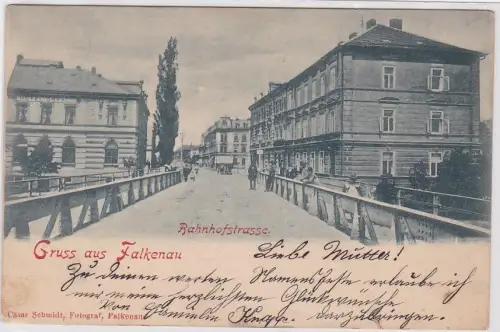 Bahnhofstrasse.
Gruss aus Falkenau
Liebe Mutter!
Zu Deinem werten Namensfeste erlaube ich
mir meine herzlichsten Glückwünsche darzubringen.
Von
Oskar Schmidt, Fotograf, Falkenau